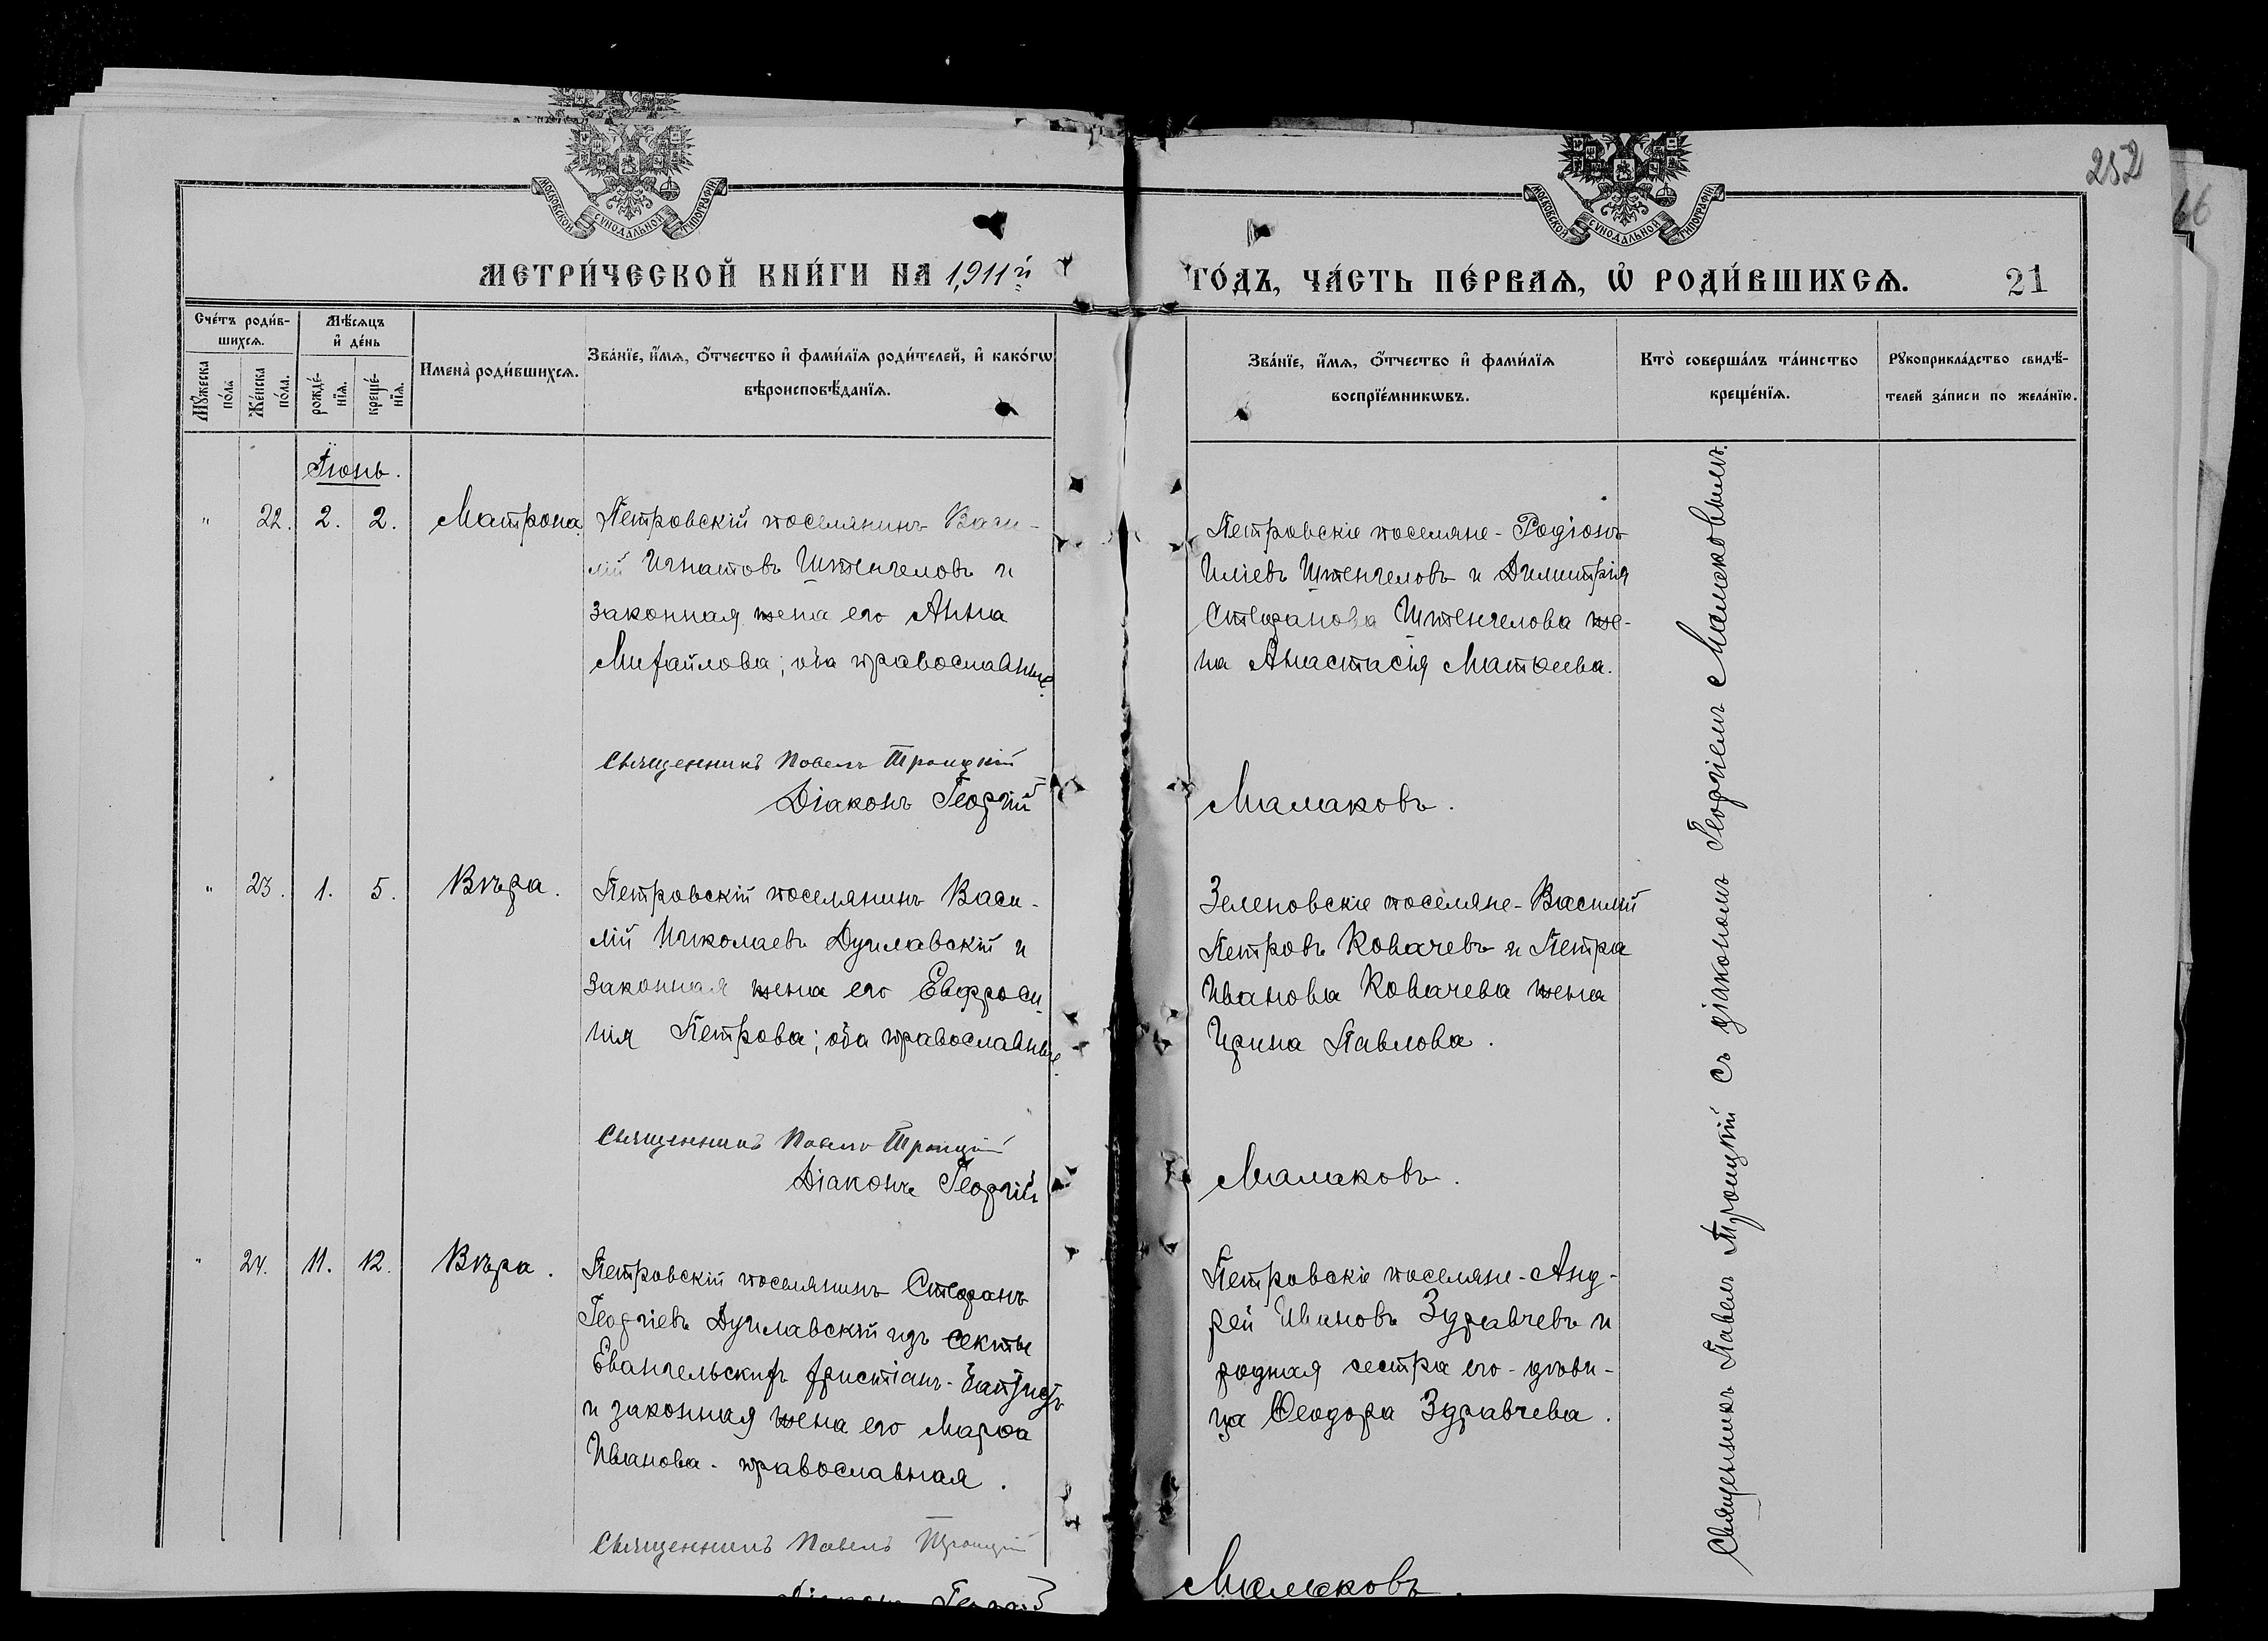 252
МОСКОВСКОЙ СѴНОДАЛЬНОЙ ТИПОГРАФІИ
МОСКОВСКОЙ СѴНОДАЛЬНОЙ ТИПОГРАФІИ
МЕТРИ́ЧЕСКОЙ КНИ́ГИ НА 1911й
ГО́ДЪ, ЧА́СТЬ ПЕ́РВАѦ, Ѡ҆ РОДИ́ВШИХСѦ. 21
Сче́тъ роди́в-
шихсѧ.
Мꙋ́жеска
по́ла
Же́нска
по́ла.
Мѣ́сѧцъ
и҆ де́нь
рожде́-
нїѧ.
креще́-
нїѧ.
Имена̀ роди́вшихсѧ.
Зва́нїе, и҆́мѧ, ѻ҆́тчество и҆ фами́лїѧ роди́телей, и҆ како́гѡ
вѣроисповѣ́данїѧ.
Зва́нїе, и҆́мѧ, ѻ҆́тчество и҆ фами́лїѧ
воспрїе́мникѡвъ.
Кто̀ соверша́лъ та́инство
креще́нїѧ.
Рꙋкоприкла́дство свидѣ́-
телей за́писи по жела́нїю.
Іюнь.
" 22. 2. 2. Матрона
Петровскій поселянинъ Васи-
лій Игнатовъ Штенгеловъ и
законная жена его Анна
Михайлова; оба православные.
Священникъ Павелъ Троицкій
Діаконъ Георгій
Петровскіе поселяне - Родіонъ
Иліевъ Штенгеловъ и Димитрія
Стефанова Штенгелова же-
на Анастасія Матѳеева.
Малаковъ.
" 23. 1. 5. Вѣра.
Петровскій поселянинъ Васи-
лій Николаевъ Дуплавскій и
законная жена его Евфроси-
нія Петрова; оба православные.
Священникъ Павелъ Троицкій
Діаконъ Георгій
Зеленовскіе поселяне - Василій
Петровъ Ковачевъ и Петра
Иванова Ковачева жена
Ирина Павлова.
Малаковъ.
" 24. 11. 12. Вѣра.
Петровскій поселянинъ Стефанъ
Георгіевъ Дуплавскій изъ секты
Евангельскихъ христіанъ - баптистъ
и законная жена его Марѳа
Иванова - православная.
Священникъ Павелъ Троицкій
Діаконъ Георгій
Петровскіе поселяне - Анд-
рей Ивановъ Здравчевъ и
родная сестра его - дѣви-
ца Ѳеодора Здравчева.
Малаковъ.
Священникъ Павелъ Троицкій съ діакономъ Георгіемъ Малаковымъ.